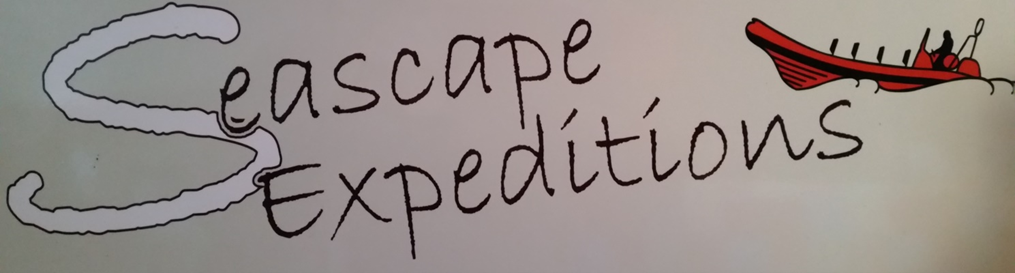 Seascape
Expeditions